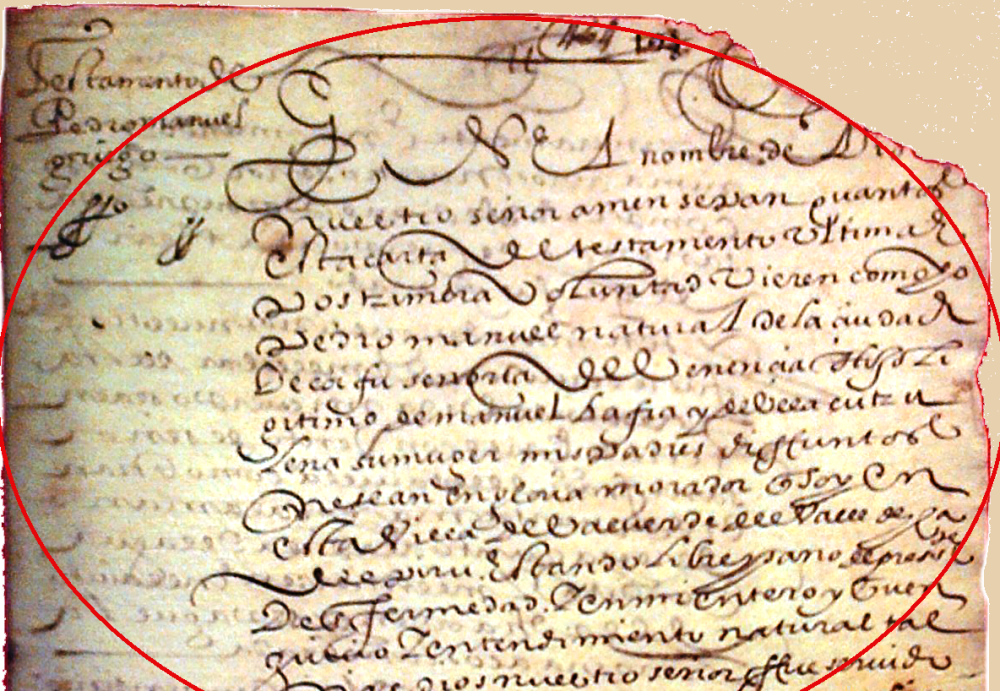 Testamento de
Pedro manuel
griego
En el nombre de Dios
Nuestro señor amen sepan quantos
esta carta de testamento ultima
Postrimera Voluntad Vieren como yo
Pedro manuel natural de la ciudad
De señoria de Venencia hijo le
gitimo de manuel y de
lena su muger mis Padres difuntos
que sean en gloria morador q soy en
esta Villa de Valverde del Valle de
del piru, Estando Libre y sano, de press
De Enfermedad. Y en mi Entero y buen
Juicio Y entendimiento natural tal
dios nuestro señor fue servido